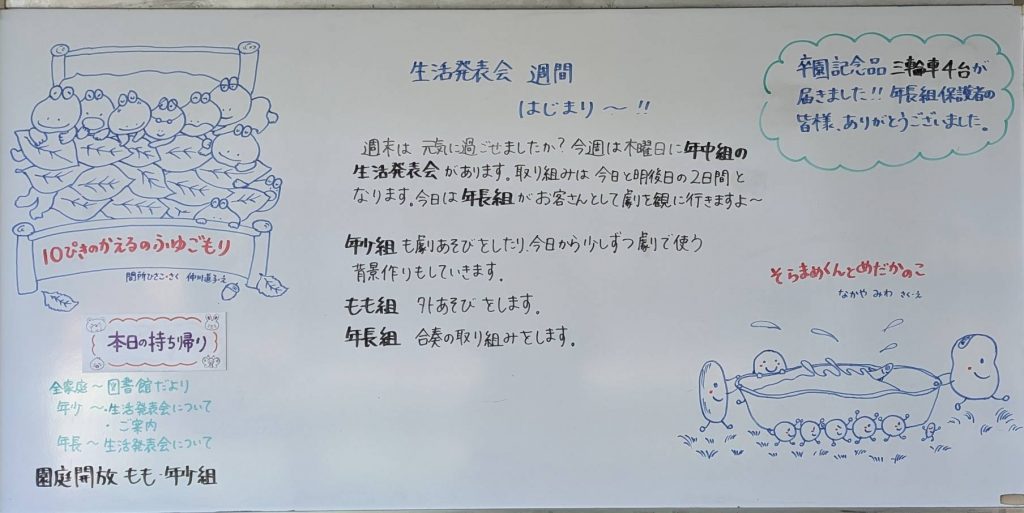 生活発表会 週間
はじまり〜!!
週末は 元気に過ごせましたか?今週は木曜日に年中組の
生活発表会があります。取り組みは今日と明後日の2日間と
なります。今日は年長組がお客さんとして劇を観に行きますよ〜
年少組も劇あそびをしたり、今日から少しずつ劇で使う
背景作りもしていきます。
もも組 外あそびをします。
年長組 合奏の取り組みをします。
卒園記念品 三輪車4台が
届きました!!年長組保護者の
皆様、ありがとうございました。
10ぴきのかえるのふゆごもり
間所ひさこ・さく 仲川道子・え
本日の持ち帰り
全家庭〜図書館だより
年少〜・生活発表会について
・ご案内
年長〜生活発表会について
園庭開放 もも・年少組
そらまめくんとめだかのこ
なかや みわ さく・え